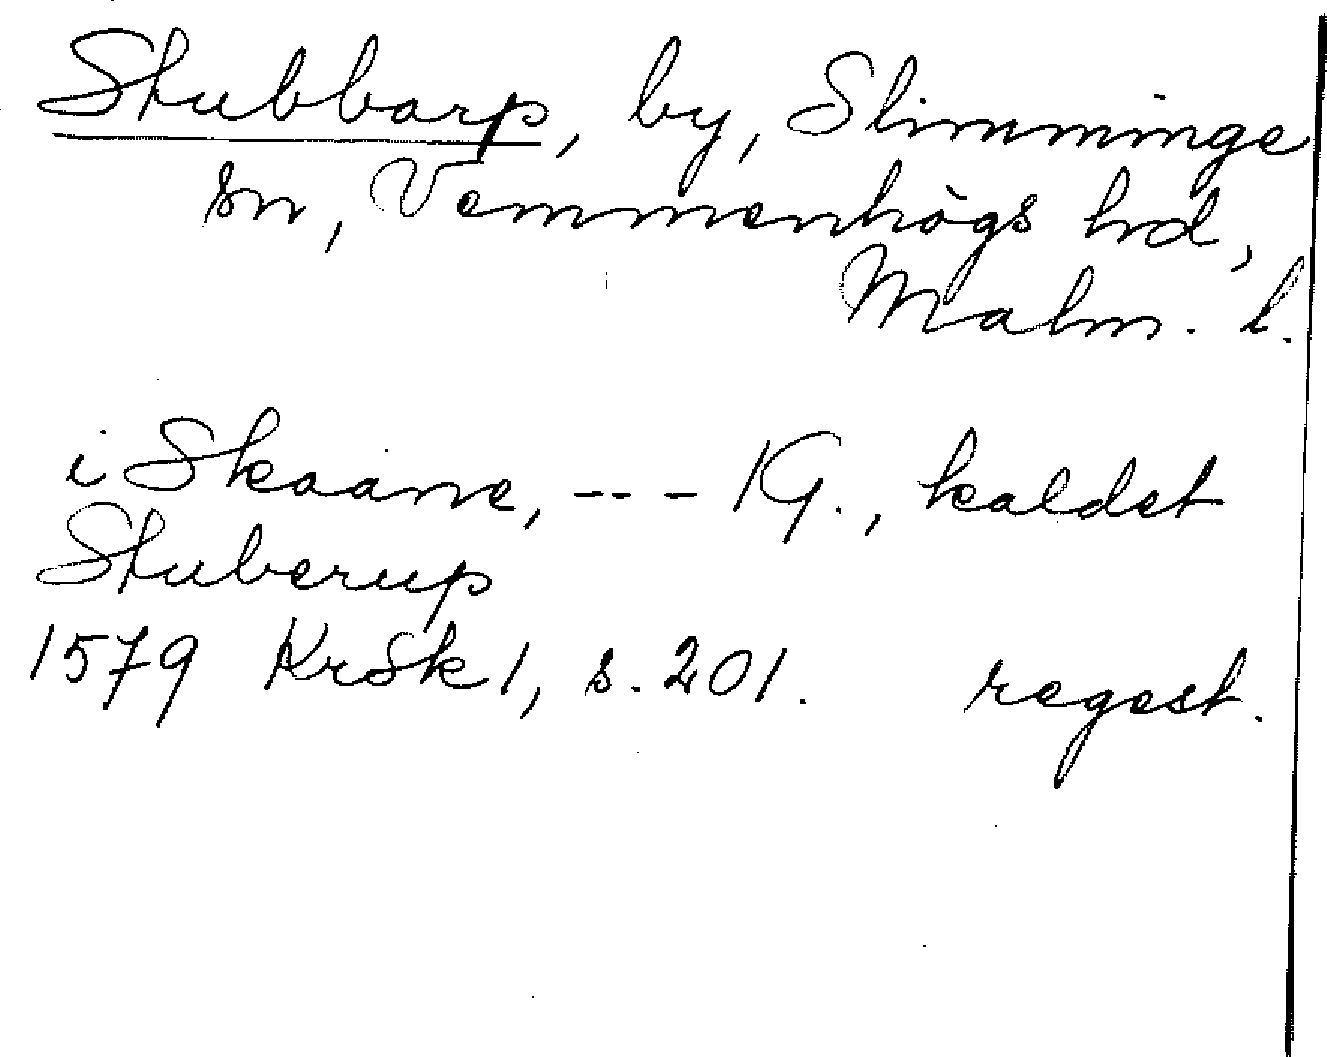 Stubbarp, by, Slimminge
sn, Vemmenhögs hd,
Malm. l.
i Skaane, --- 1G., kaldet
Stuberup
1579 KrSk 1, s. 201. regest.